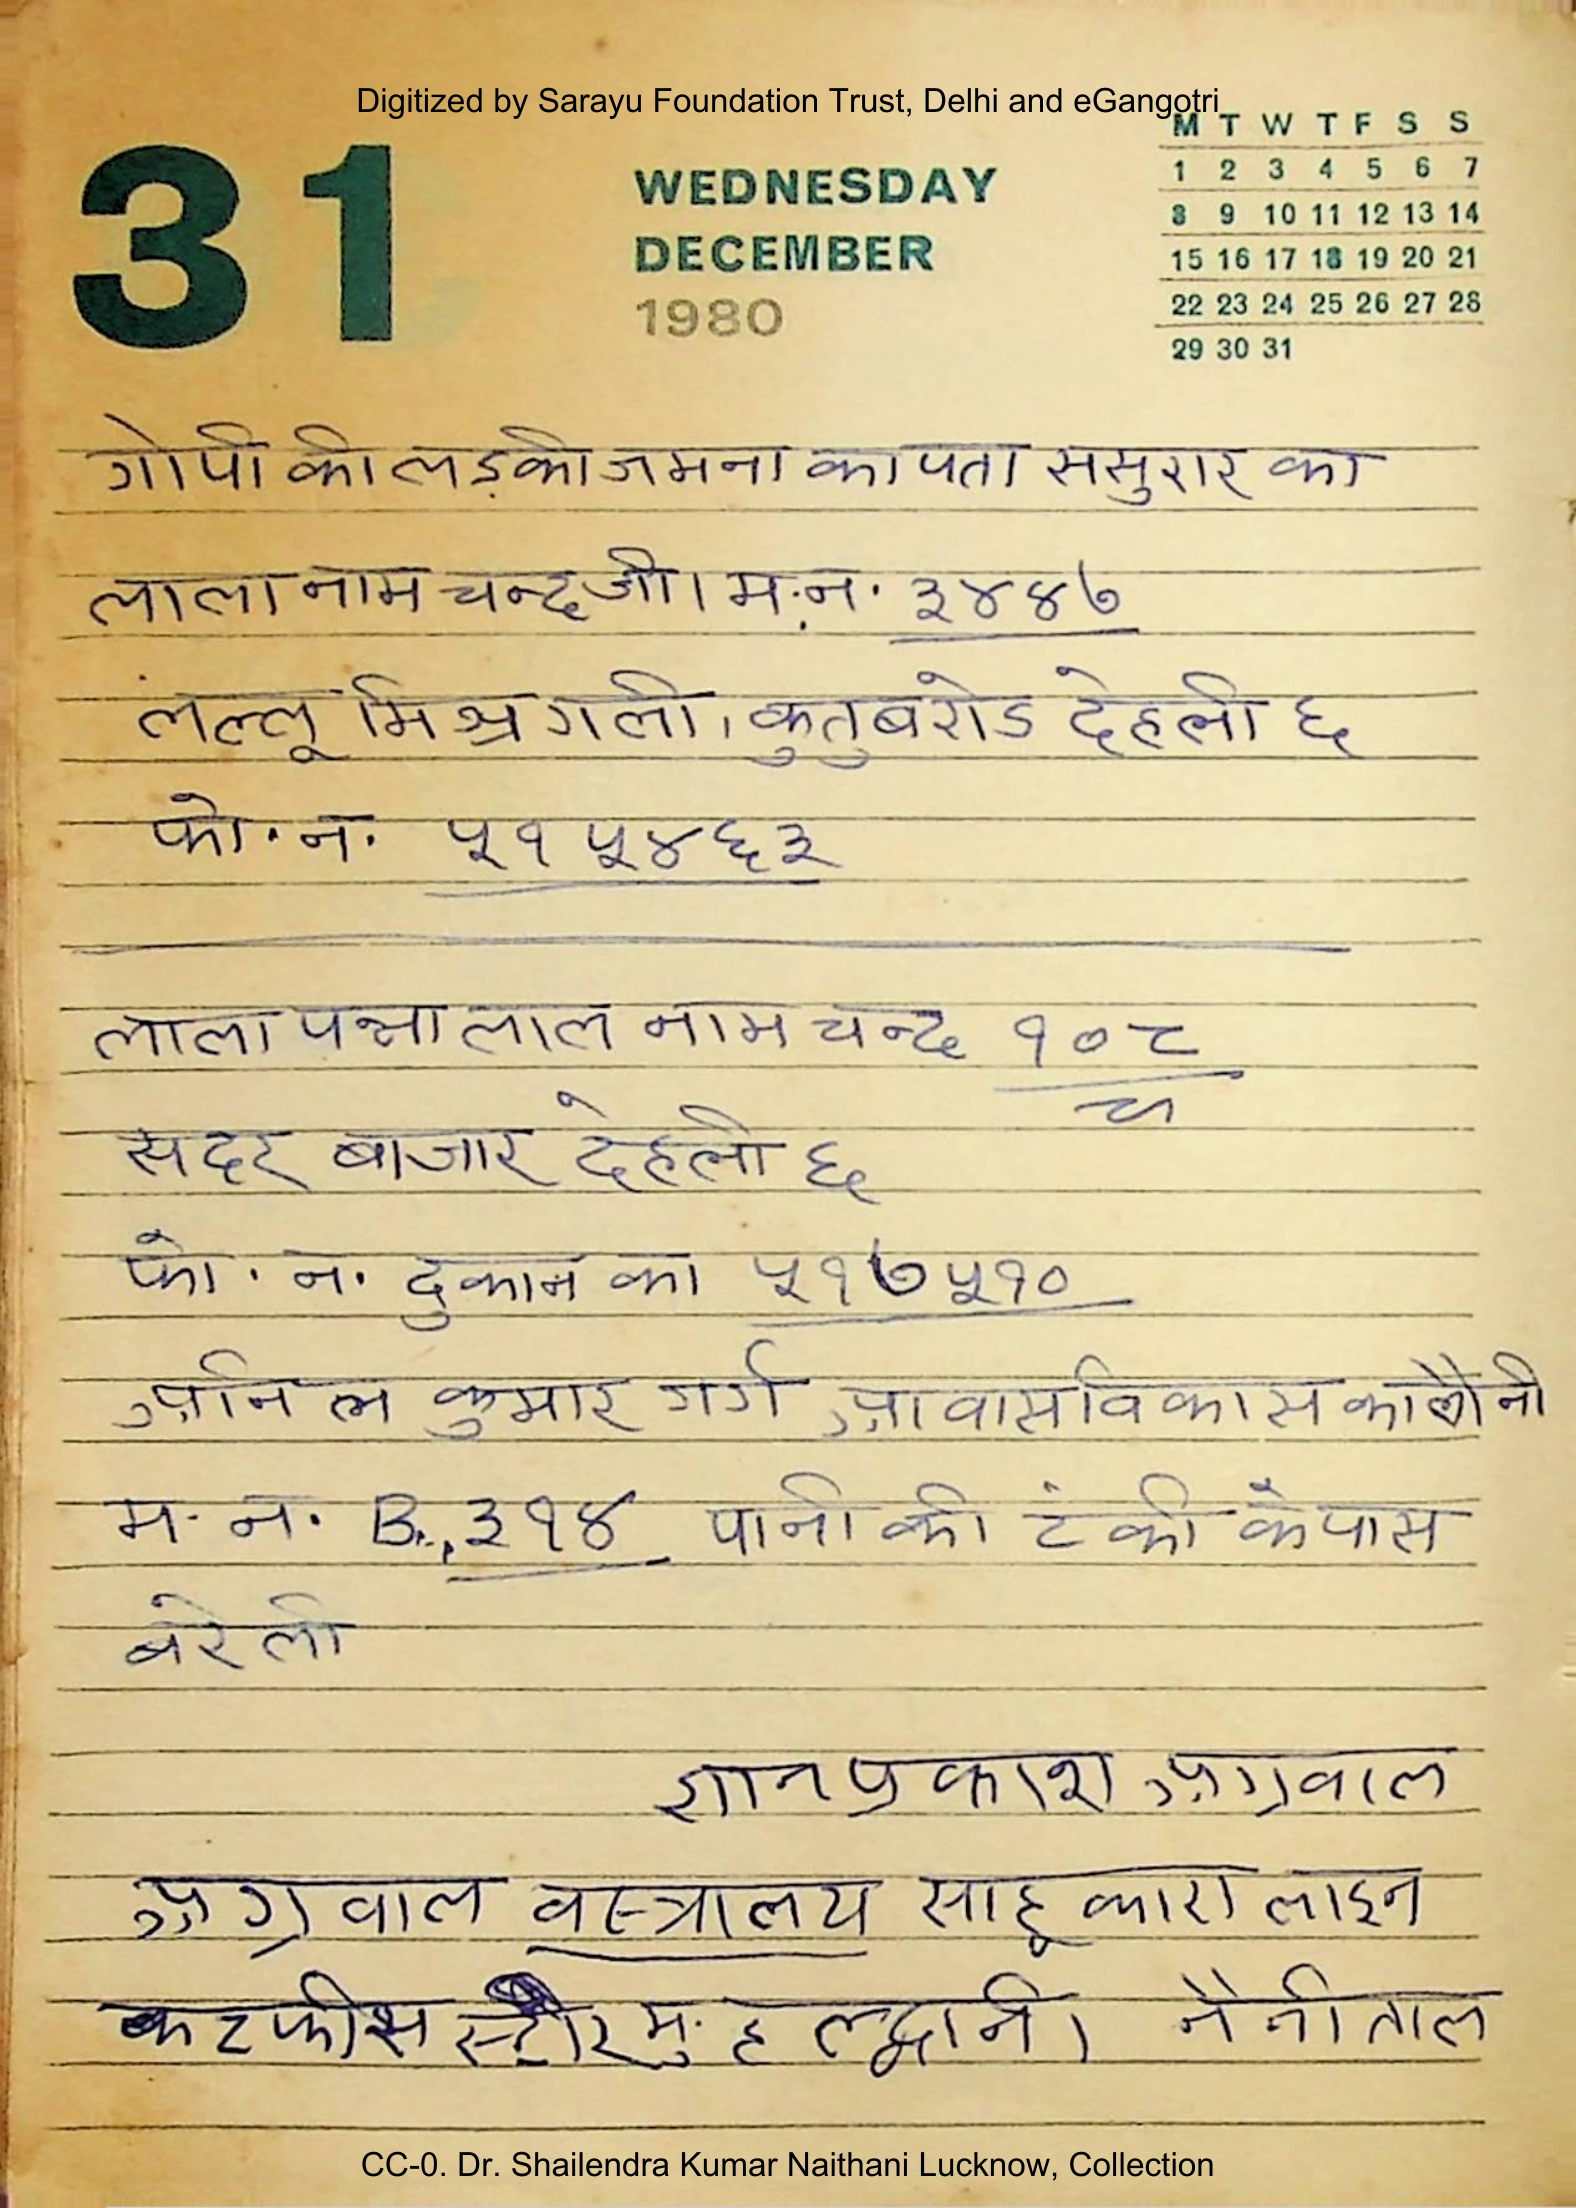 Digitized by Sarayu Foundation Trust, Delhi and eGangotri
31
WEDNESDAY
DECEMBER
1980
M T W T F S S
1 2 3 4 5 6 7
8 9 10 11 12 13 14
15 16 17 18 19 20 21
22 23 24 25 26 27 28
29 30 31
गोपी की लड़की जमना का पता ससुरार का
लाला नाम चन्द जी। म.न. ३४४७
लल्लू मिश्र गली, कुतुब रोड देहली ६
फो. न. ५१५४६३
लाला पन्नालाल नाम चन्द १०८
सदर बाजार देहली ६
फो. न. दुकान का ५१७५१०
अनिल कुमार गर्ग आवास विकास कालौनी
म. न. B., ३१४ पानी की टंकी के पास
बरेली
ज्ञान प्रकाश अग्रवाल
अग्रवाल वस्त्रालय साहूकारा लाइन
कटफीस स्टोर मु. हल्द्वानी। नैनीताल
CC-0. Dr. Shailendra Kumar Naithani Lucknow, Collection